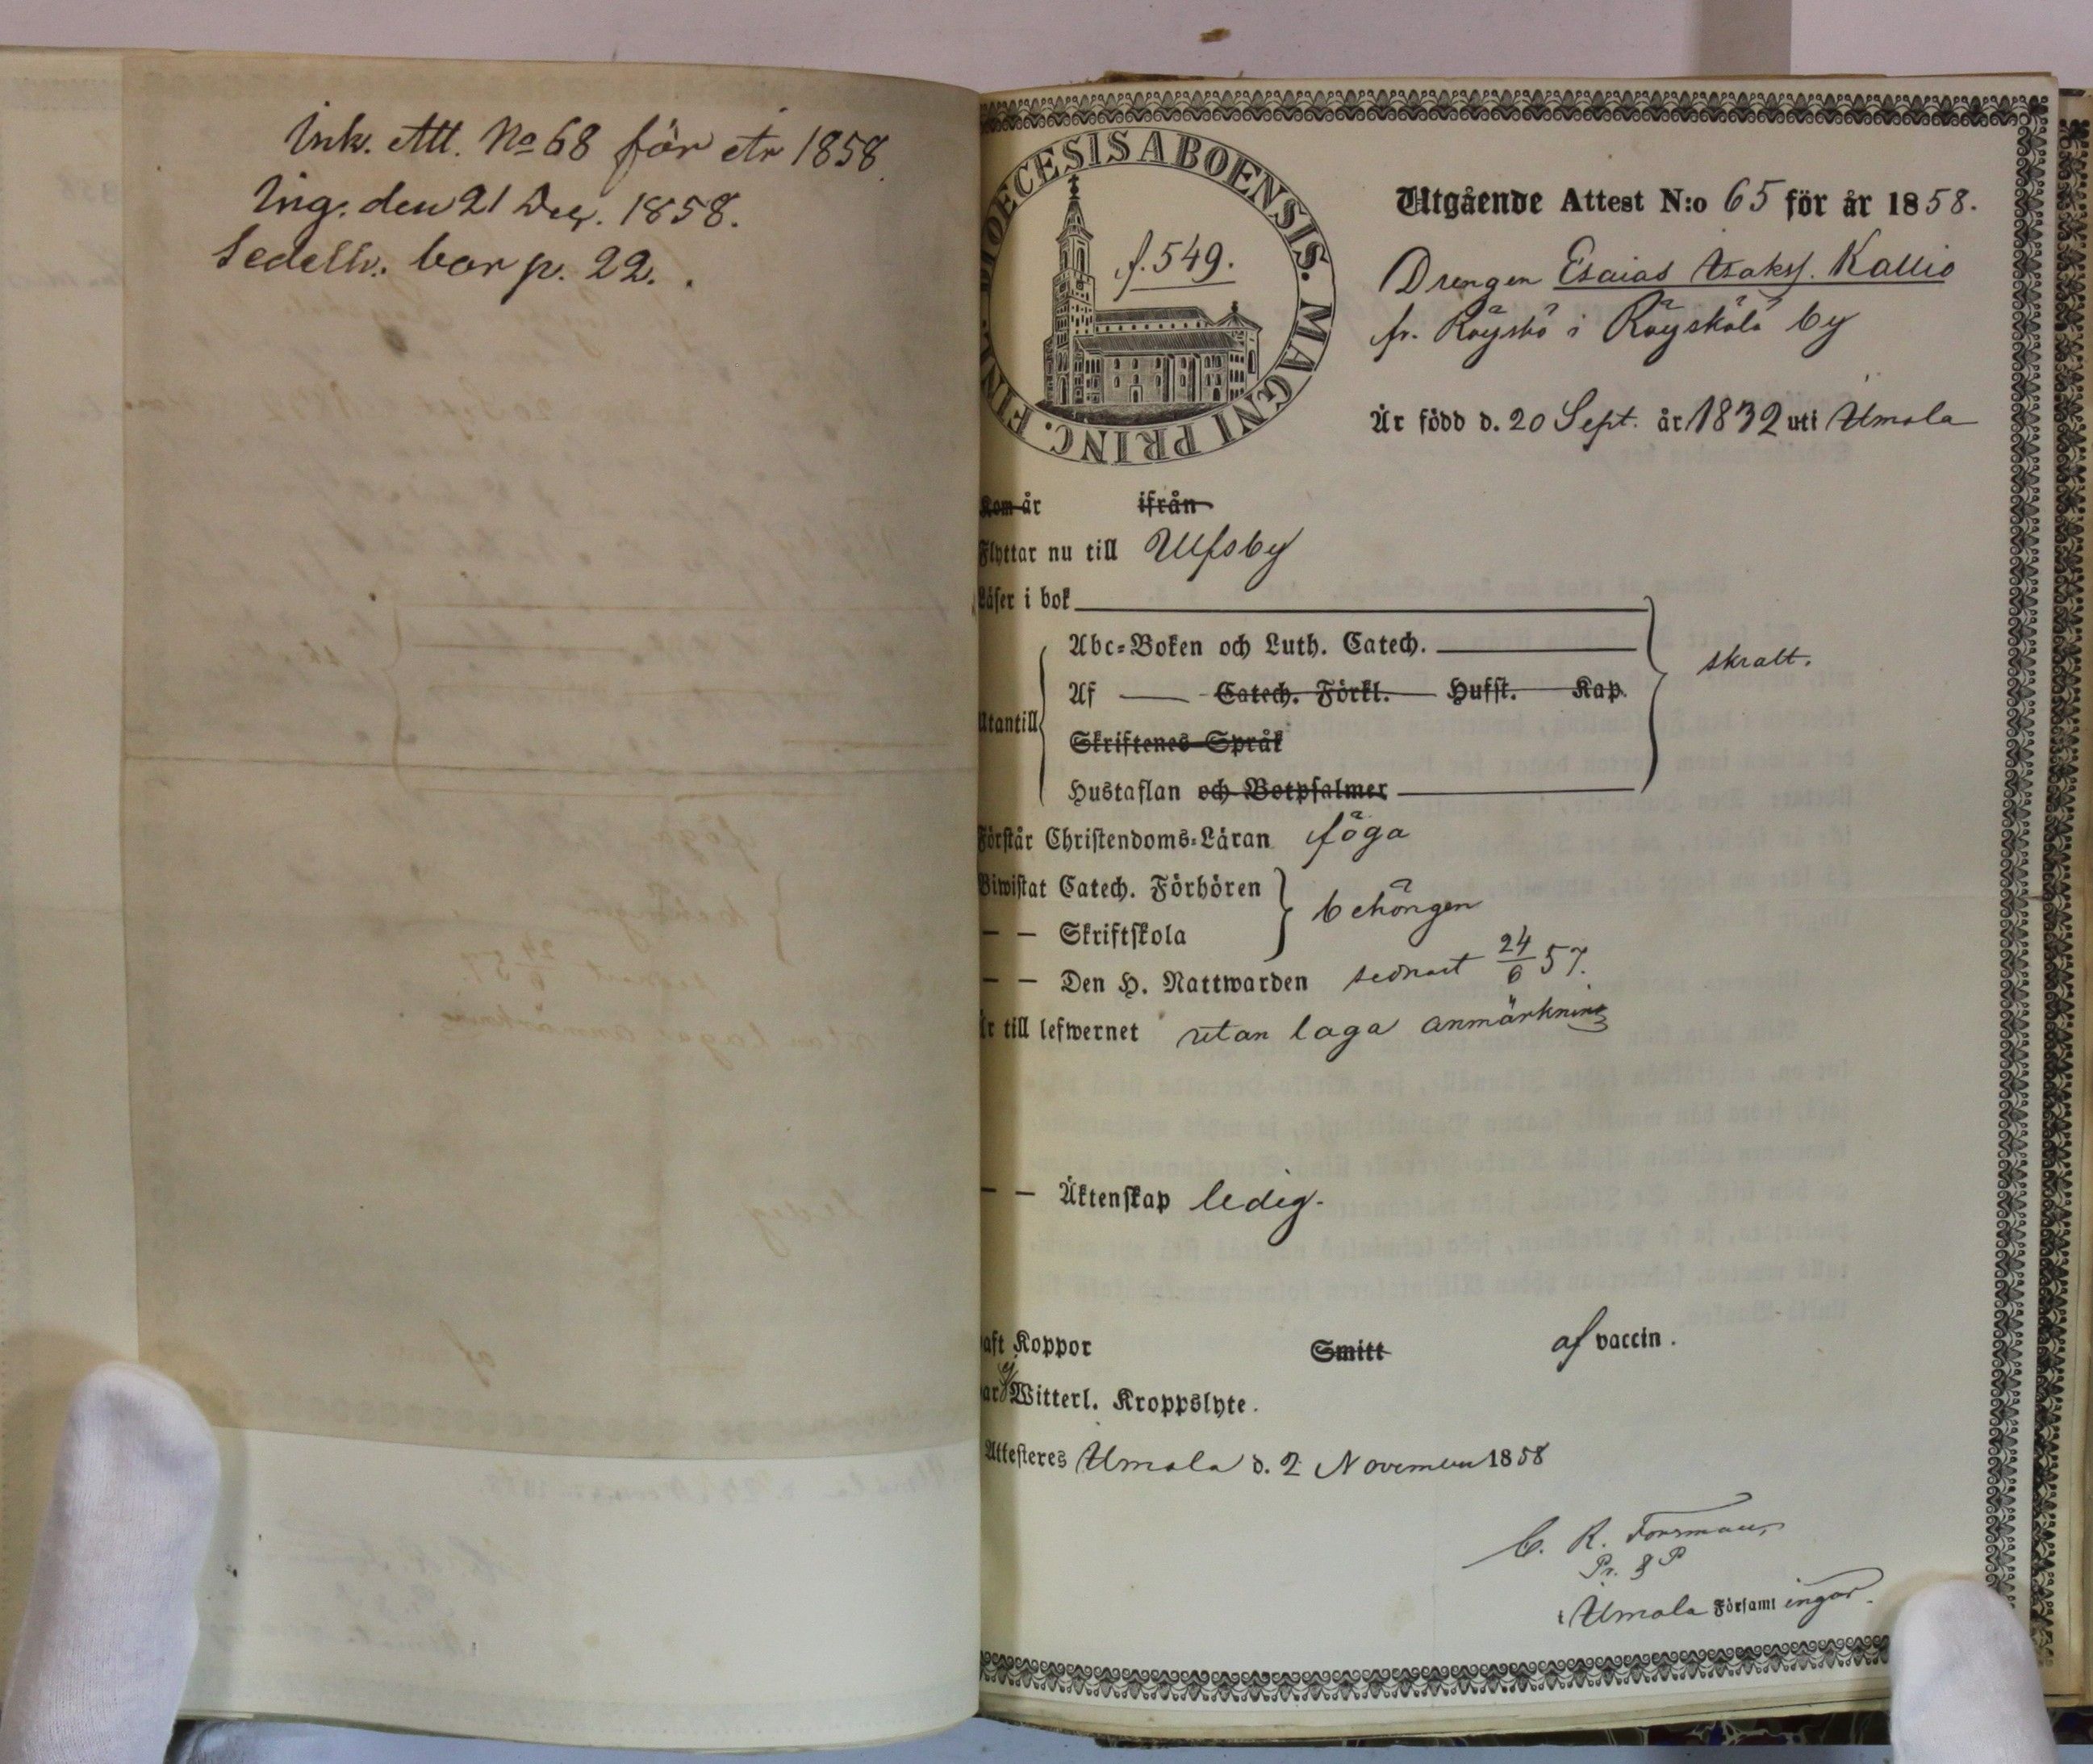 Ink. Att. No 68 för år 1858.
Ing. den 21 Dec. 1858.
Sedelh. bar p. 22.
DIOECESIS ABOENSIS. MAGNI PRINC. FINL.
f. 549.
Utgående Attest N:o 65 för år 1858.
Drengen Esaias Isakss. Kallio
fr. Röyskö i Röyskölä by
Är född d. 20 Sept. år 1832 uti Urnala
Kom år ifrån
Flyttar nu till Ulfsby
Läser i bok
Abc-Boken och Luth. Catech.
skralt.
Af Catech. Förkl. Hufst. Kap.
Utantill
Skriftenes Språk
Hustaflan och Botpsalmer
Förstår Christendoms-Läran föga
Biwistat Catech. Förhören
behörigen
— — Skriftskola
— — Den H. Nattwarden sednast 24/6 57.
Är till lefwernet utan laga anmärkning
— — Äktenskap ledig.
haft Koppor Smitt af vaccin.
har ej Witterl. Kroppslyte.
Attesteres Urnala d. 2 November 1858
C. R. Forsman
Urnala Församlingar.